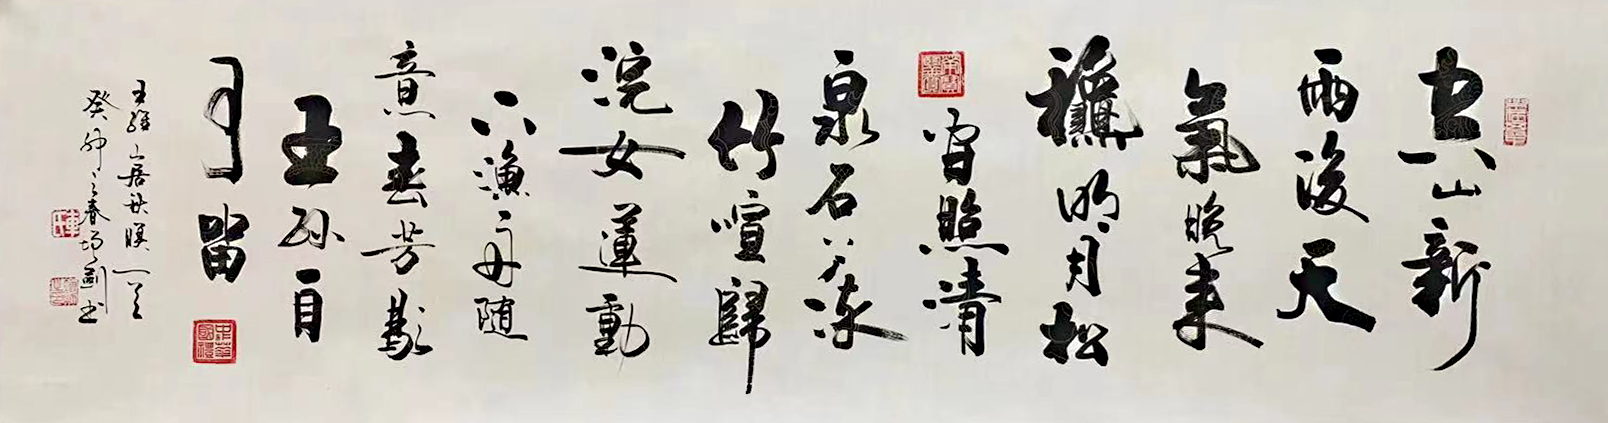 空山新
雨後天
氣晚来
龝明月松
间照清
泉石上流
竹喧歸
浣女蓮動
下漁舟随
意春芳歇
王孙自
可留
王維山居秋暝一首
癸卯之春 剑书